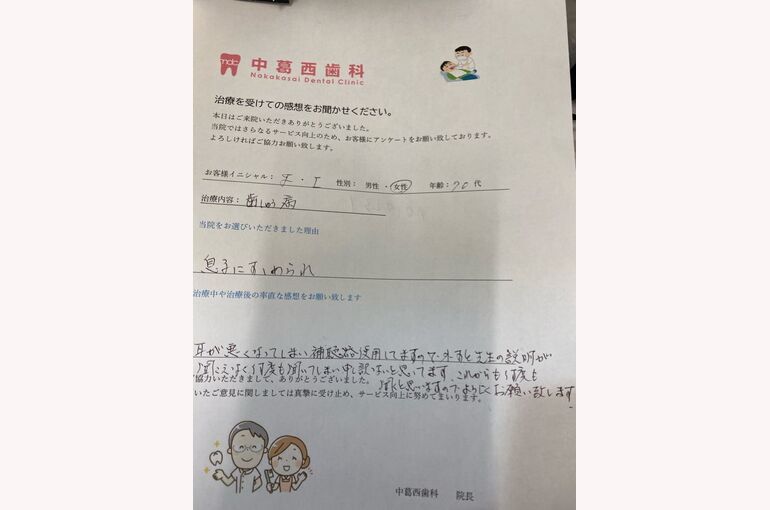 ndc
中葛西歯科
Nakakasai Dental Clinic
治療を受けての感想をお聞かせください。
本日はご来院いただきありがとうございました。
当院ではさらなるサービス向上のため、お客様にアンケートをお願い致しております。
よろしければご協力お願い致します。
お客様イニシャル： ・ I 性別： 男性 ・ 女性 年齢：70代
治療内容： 歯しゅう病
当院をお選びいただきました理由
息子にすゝめられ
治療中や治療後の率直な感想をお願い致します
耳が悪くなってしまい補聴器使用してますので外すと先生の説明が
聞こえなく何度も聞いてしまい申し訳ないと思ってます これからも何度も
協力いただきまして、ありがとうございました。
聞くと思いますのでよろしくお願い致します
いたご意見に関しましては真摯に受け止め、サービス向上に努めてまいります。
中葛西歯科 院長